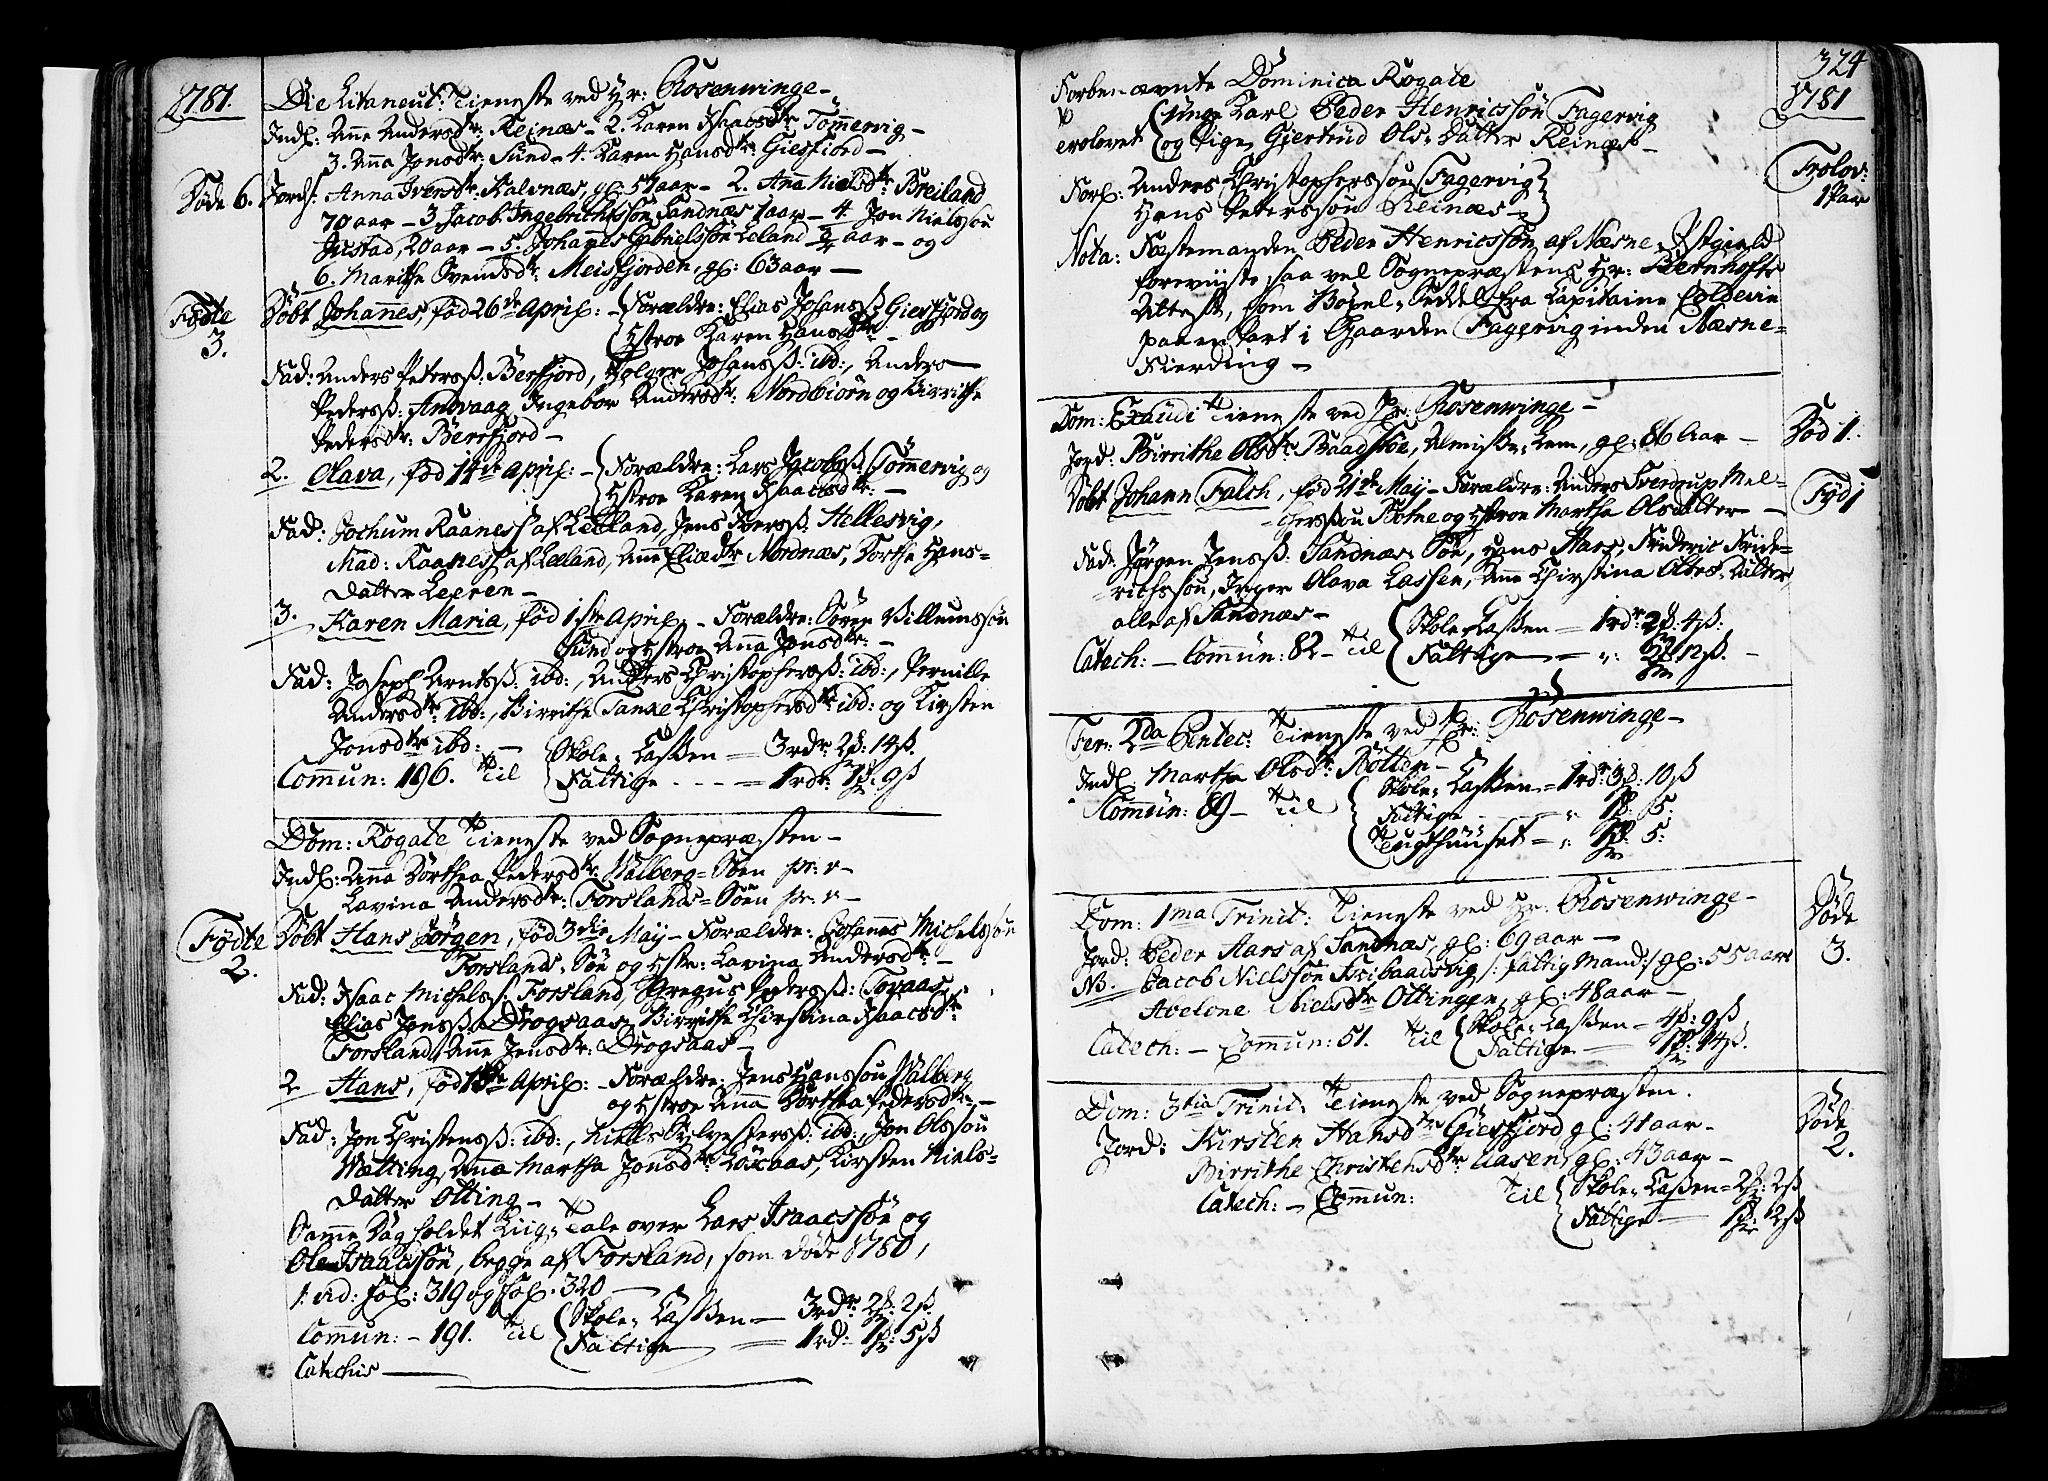 1781.
Die Litaneut: Tieneste ved Hr: Rosenwinge –
Indl: Anne Andersdtr: Reinæs – 2. Karen Isaacsdtr Tömmervig –
3. Anna Jonsdtr: Sund – 4. Karen Hansdtr: Giesfjord –
Døde 6. Jords: Anna Iversdtr: Kalvnæs, gl: 57 aar – 2. Anna Nielsdtr Breiland
70 aar – 3. Jacob Ingebrichtssøn Sandnæs 1 aar – 4. Jon Nielssøn
Justad, 20 aar – 5. Johannes Gabrielssøn Leland aar – og
6. Marithe Svendsdtr: Meisfjorden, gl: 63 aar –
Fødte 3. Døbt Johannes, fød 26de April: – Forældre: Elias Johanss: Giesfjord og
Hstroe Karen Hansdtr –
Fad: Anders Peterss: Berfjord, Holger Johanss: ibd:, Anders
Pederss: Andvaag, Ingebor Andersdtr: Nordbiörn og Birrithe
Pedersdtr: Berfjord –
2. Olava, fød 14de April: – Forældre: Lars Jacobss: Tömmervig og
Hstroe Karen Isaacsdtr: –
Fad: Jochum Raaness af Leland, Jens Iverss: Hellesvig,
Mad: Raaness af Leland, Anne Eliædtr Nordnæs, Dorthe Hans-
datter Leeren –
3. Karen Maria, fød 1ste April – Forældre: Sören Villumssøn
Sund og Hstroe Anna Jonsdtr: –
Fad: Joseph Arntss: ibd:, Anders Christopherss: ibd:, Pernille
Andersdtr: ibd:, Birrithe Tanke Christophersdtr ibd: og Kirsten
Jonsdtr ibd: –
Comun: 196. Til Skole-Cassen = 3rdr: 2ß: 14ß.
Fattige - - - = 1rdr: 1ß: 9ß
Dom: Rogate Tieneste ved Sognepræsten –
Indl: Anna Dorthea Pedersdtr: Valberg-Søen pr: v –
Lavina Andersdtr: Forslands-Søen pr: v –
Fødte 2. Døbt Hans Jörgen, fød 3die May – Forældre: Johannes Michelssøn
Forslands-Søe og Hstr: Lavina Andersdtr: –
Fad: Isaac Michelss: Forsland, Gregus Pederss: Toraas,
Elias Jonss: Drogsaas, Birrithe Christina Isaacsdtr
Forsland, Anne Jensdtr: Drogsaas –
2 Hans, fød April: – Forældre: Jens Hanssøn Valberg
og Hstroe Anna Dorthea Pedersdtr: –
Fad: Jon Christenss: ibd:, Niells Sylvesterss: ibd:, Jon Olssøn
Wætting, Anna Martha Jonsdtr Löxaas, Kirsten Niels-
datter Otting –
Samme Dag holdet Liig-Tale over Lars Isaacssøn og
Ole Isaacssøn, begge af Forsland, som døde 1780,
1: vid: fol: 319 og fol. 320 –
Commun: – 191. Til Skole-Cassen – 3rdr: 2ß: 2ß.
Fattige = 1rd: 1ß: 5ß
Catechis –
324
1781
Forbenævnte Dominica Rogate
Trolov: 1 Par
trolovet unge Karl Peder Henricssøn Fagervig
og Pige Giertrud Ols-Datter Reinæs –
Forl: Anders Christopherssøn Fagervig
Hans Peterssøn Reinæs –
Nota: Fæstemanden Peder Henricssøn af Næsne Præstegield
foreviiste saa vel Sognepræstens Hr: Bernhofts
Attest, som Böxel-Seddel fra Capitaine Coldevin
paa en Part i Gaarden Fagervig inden Næsne-
Fierding –
Dom: Exaudi Tieneste ved Hr: Rosenwinge –
Død 1. Jord: Birrithe Olsdtr: Baadstøe, Almisse-Lem, gl: 86 Aar –
Fød 1 Døbt Johann Falch, fød 21de May – Forældre: Anders Sverdrup Mel-
cherssøn Botne og Hstroe Martha Olsdatter –
Fad: Jörgen Jenss: Sandnæs-Søe, Hans Aars, Frideric Fride-
richssøn, Inger Olava Lassen, Anne Christina Olves-Datter,
alle af Sandnæs –
Catech: – Commun: 82 – Til Skole-Cassen = 1rdr: 2ß: 4ß:
Fattige – = ": 2ß 12ß. –
Fer: 2da Pentec: Tieneste ved Hr: Rosenwinge –
Indl: Martha Olsdtr: Botten –
Commun: 89 – Til Skole-Cassen = 1rdr: 3ß: 10ß
Fattige - - - ": 1ß: 5:
Tugthuuset = ": 1ß: 5:
Dom: 1ma Trinit: Tieneste ved Hr: Rosenwinge –
Døde 3. Jord: Peder Aars af Sandnæs, gl: 69 aar –
NB. Jacob Nielssøn Skibaadsvig /: fattig Mand :/ gl: 55 aar
Abelone Nielsdtr Ottingen, gl: 48 aar –
Catech: – Commun: 51. Til Skole-Cassen – 4ß: 9ß
Fattige – 1ß: 14ß.
Dom: 3tia Trinit. Tieneste ved Sognepræsten.
Døde 2. Jord: Kirsten Hansdtr Giesfjord gl: 41 aar –
Birrithe Christensdtr Aasen gl: 43 aar –
Catech: – Commun: Til Skole-Cassen = 2ß: 2ß
Fattige – 1ß: 12ß